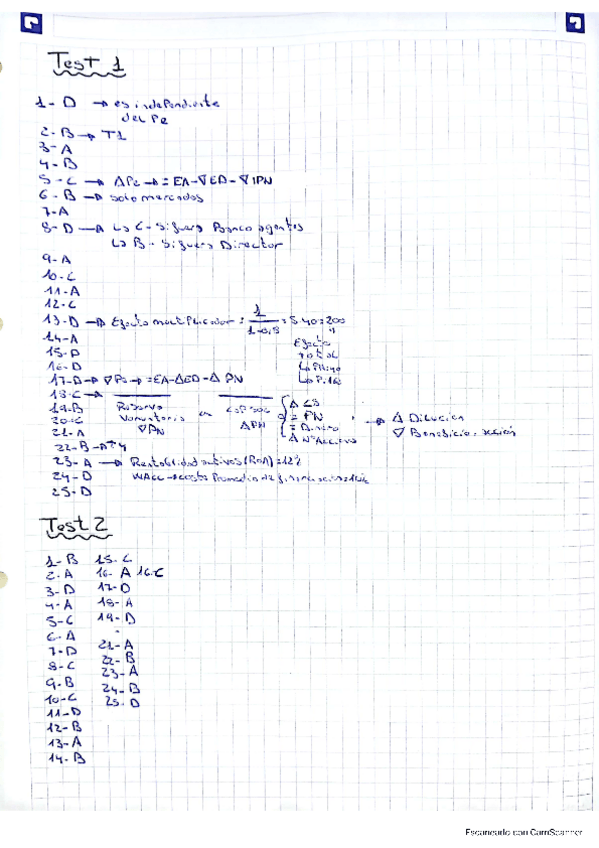 Test 1
1- D → es independiente
del Pe
2- B → T1
3- A
4- B
5- C → ΔPe → = EA - ∇ED - ∇IPN
6- B → solo mercados
7- A
8- D → La C - Figura Banco agentes
La B - Figura Director
9- A
10- C
11- A
12- C
13- D → Efecto multiplicador = 1/1-0,8 = 5·40=200
14- A
Efecto
total
15- D
16- D
17- D → ∇Pe → = EA - ΔED - Δ PN
18- C →
19- B
Reserva
Voluntaria
∇PN
en
Cap Soc
ΔPN
Δ CS
= PN
= Dinero
Δ Nº Acciones
→ Δ Dilución
∇ Beneficio acción
20- C
21- A
22- B → T4
23- A → Rentabilidad activos (RoA) = 12%
24- D
WACC → costo promedio de financiación
25- D
Test 2
1- B
2- A
3- D
4- A
5- C
6- A
7- D
8- C
9- B
10- C
11- D
12- B
13- A
14- B
15- C
16- A 16-C
17- D
18- A
19- D
21- A
22- B
23- A
24- B
25- D
Escaneado con CamScanner